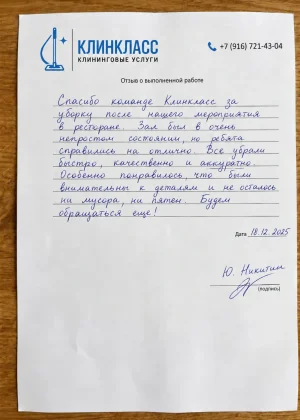 КЛИНКЛАСС
КЛИНИНГОВЫЕ УСЛУГИ
+7 (916) 721-43-04
Отзыв о выполненной работе
Спасибо команде Клинкласс за
уборку после нашего мероприятия
в ресторане. Зал был в очень
непростом состоянии, но ребята
справились на отлично. Все убрали
быстро, качественно и аккуратно.
Особенно понравилось, что были
внимательны к деталям и не осталось
ни мусора, ни пятен. Будем
обращаться еще!
Дата 18.12.2025
Ю. Никитин
(подпись)